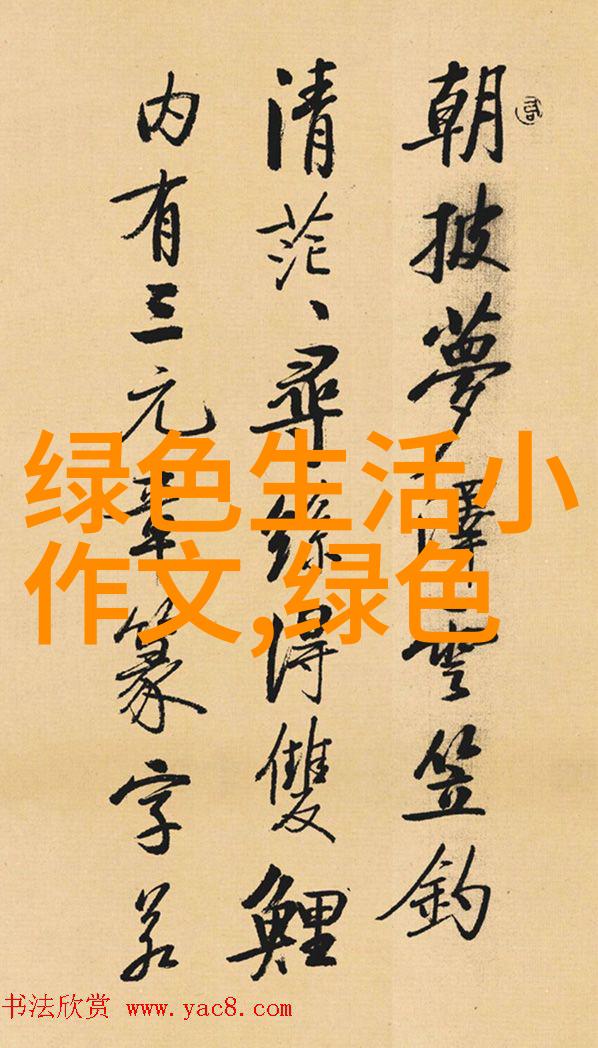 朝披夢澤雲笠釣
清茫、尋絲得雙鯉
内有三元章篆字若
绿色生活小
作文,绿色
书法欣赏 www.yac8.com